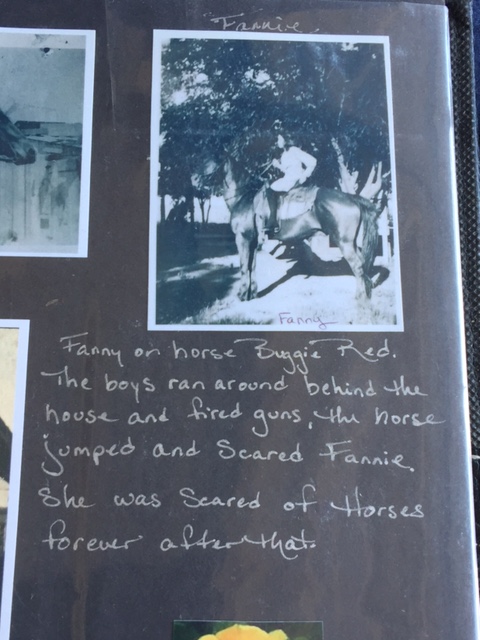 Fannie
Fanny
Fanny on horse Buggie Red.
The boys ran around behind the
house and fired guns, the horse
jumped and Scared Fannie.
She was Scared of Horses
forever after that.